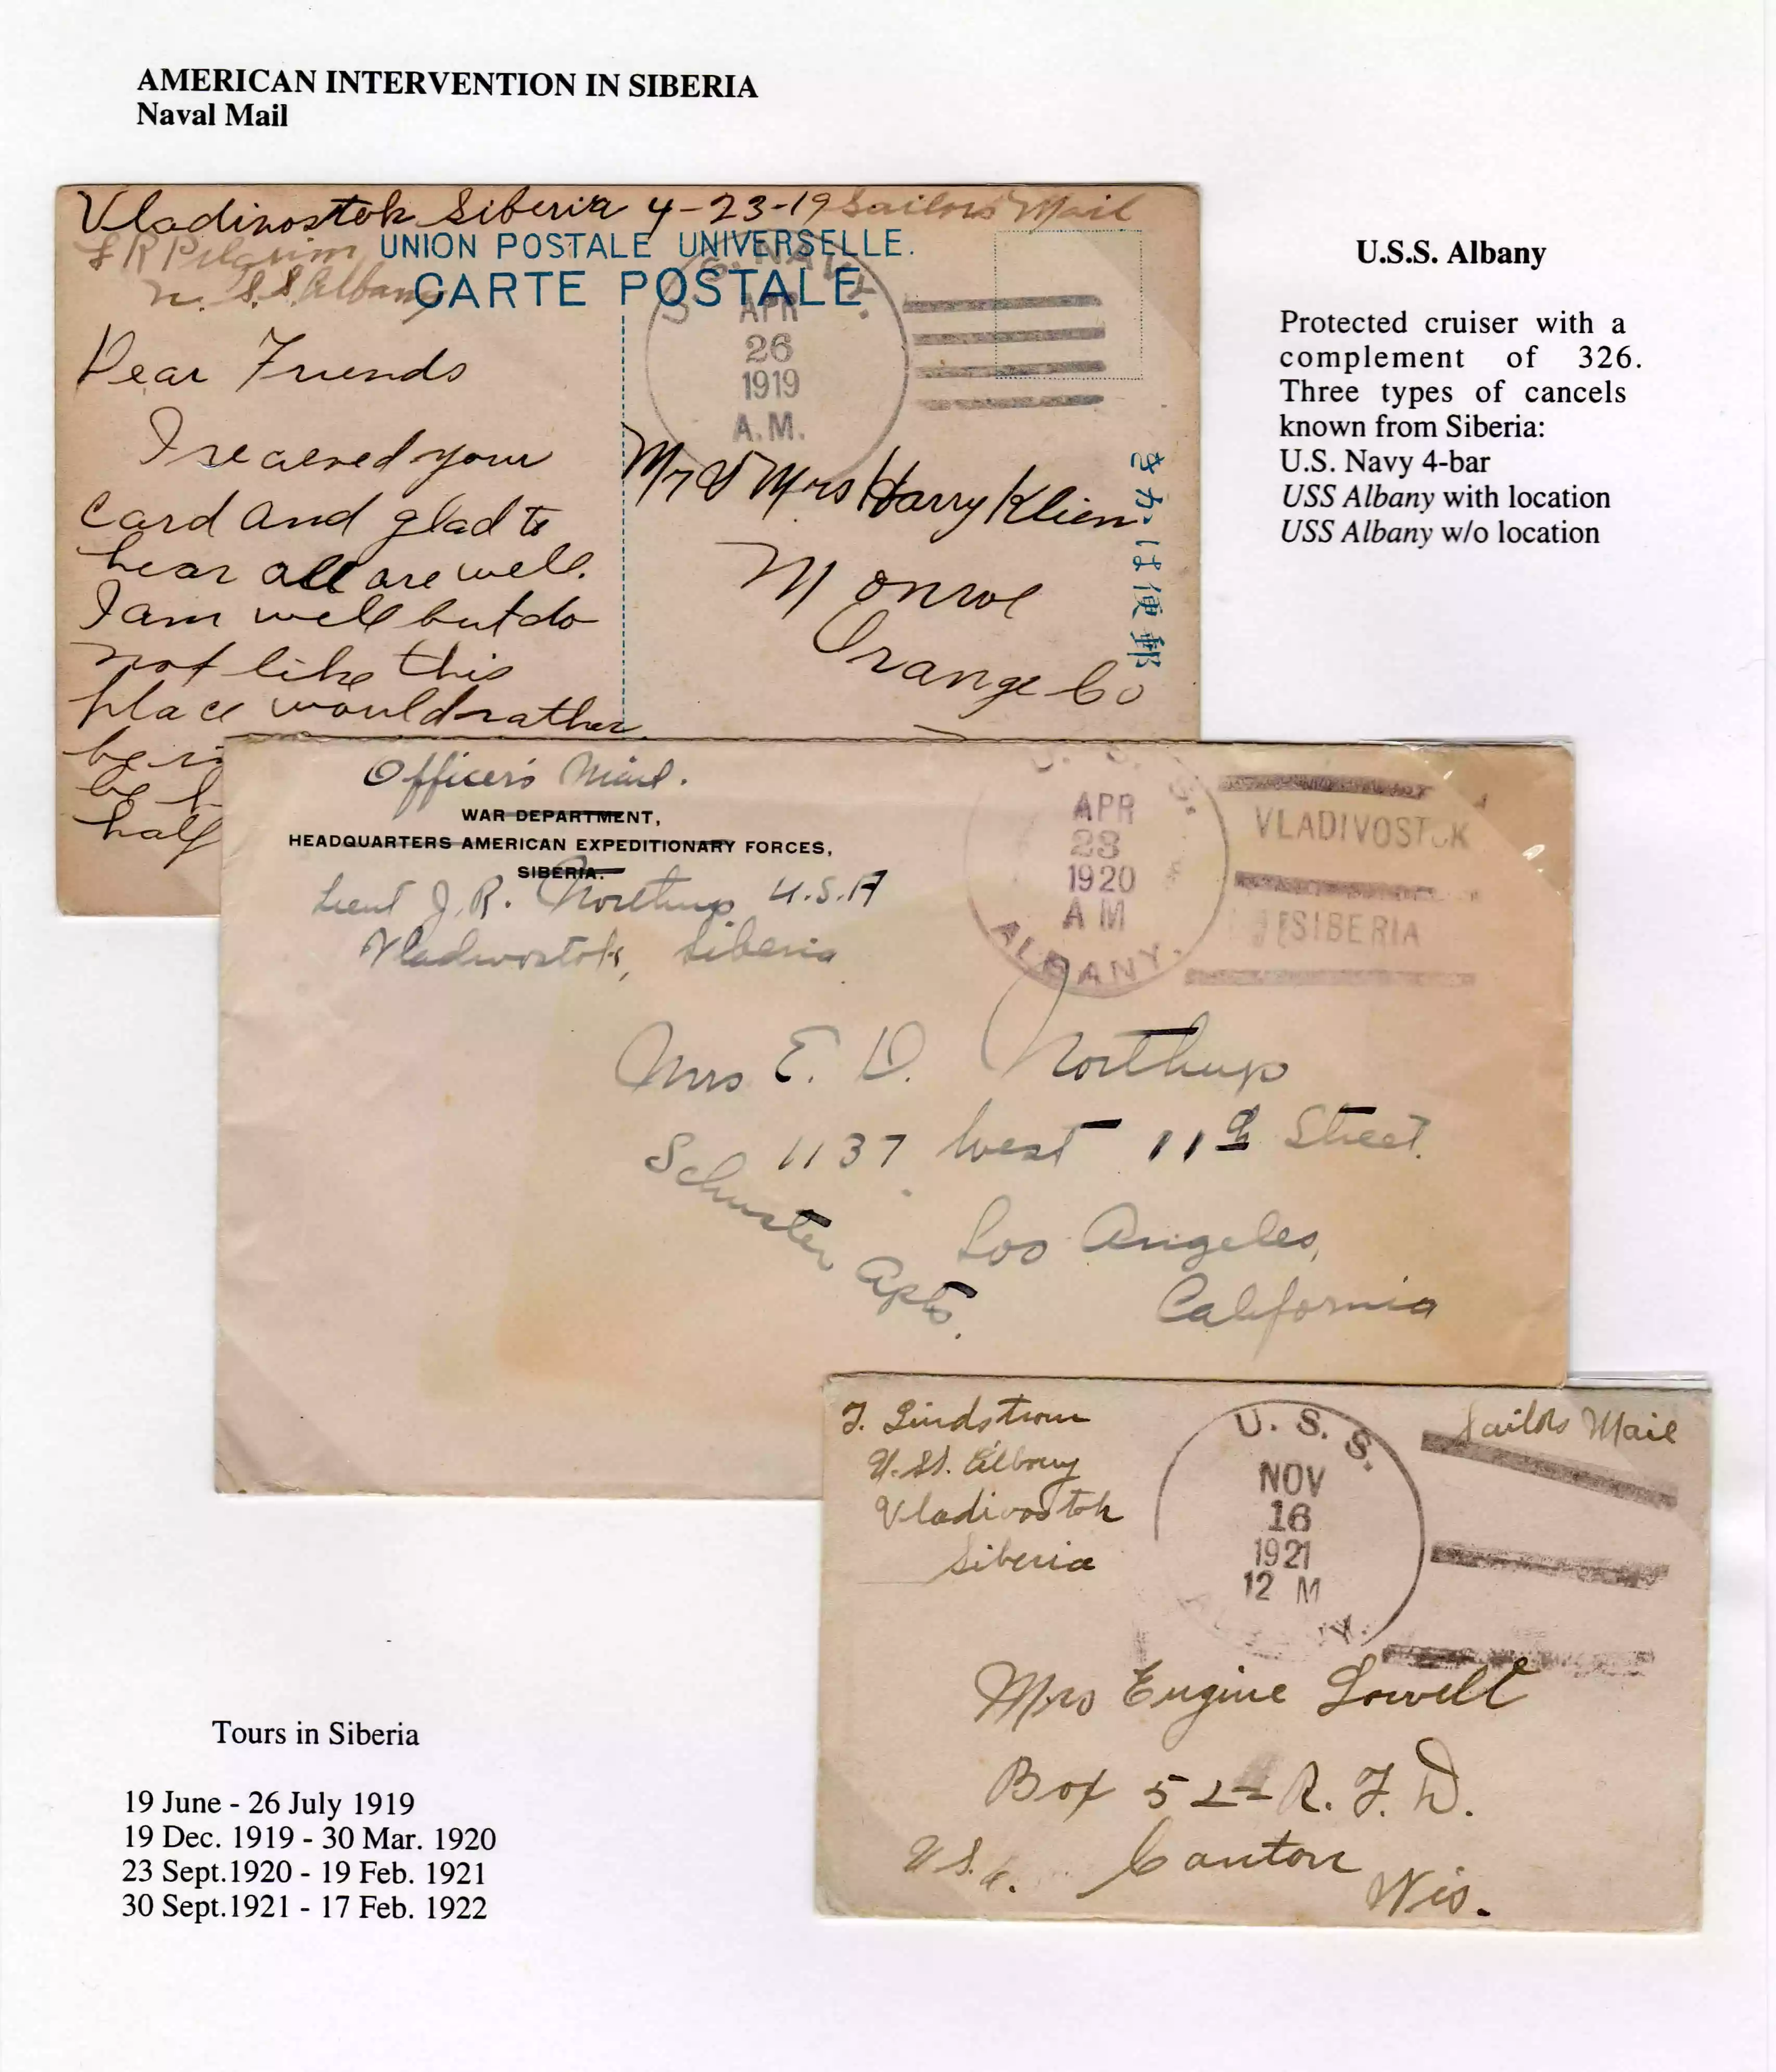 AMERICAN INTERVENTION IN SIBERIA
Naval Mail
Vladivostok Siberia 4-23-19 Sailors Mail
UNION POSTALE UNIVERSELLE.
F R Pilgrim
U.S.S. Albany
CARTE POSTALE
U.S. NAVY.
APR
26
1919
A.M.
Dear Friends
I recieved your
card and glad to
hear all are well.
I am well but do
not like this
place would rather
be
be
half
Mr & Mrs Harry Klien
Monroe
Orange Co
きかは便郵
U.S.S. Albany
Protected cruiser with a
complement of 326.
Three types of cancels
known from Siberia:
U.S. Navy 4-bar
USS Albany with location
USS Albany w/o location
Officer's Mail.
WAR DEPARTMENT,
HEADQUARTERS AMERICAN EXPEDITIONARY FORCES,
SIBERIA.
Lieut J. R. Northup U.S.A
Vladivostok, Siberia
U. S. S.
APR
23
1920
A M
ALBANY.
VLADIVOSTOK
SIBERIA
Mrs E. D. Northup
1137 West 11th Street.
Schuster Apts.
Los Angeles,
California
J. Lindstrom
U.S.S. Albany
Vladivostok
Siberia
U. S. S.
NOV
16
1921
12 M
Sailors Mail
Mrs Eugine Lowell
Box 52 R. F. D.
Canton
U.S.a.
Wis.
Tours in Siberia
19 June - 26 July 1919
19 Dec. 1919 - 30 Mar. 1920
23 Sept.1920 - 19 Feb. 1921
30 Sept.1921 - 17 Feb. 1922